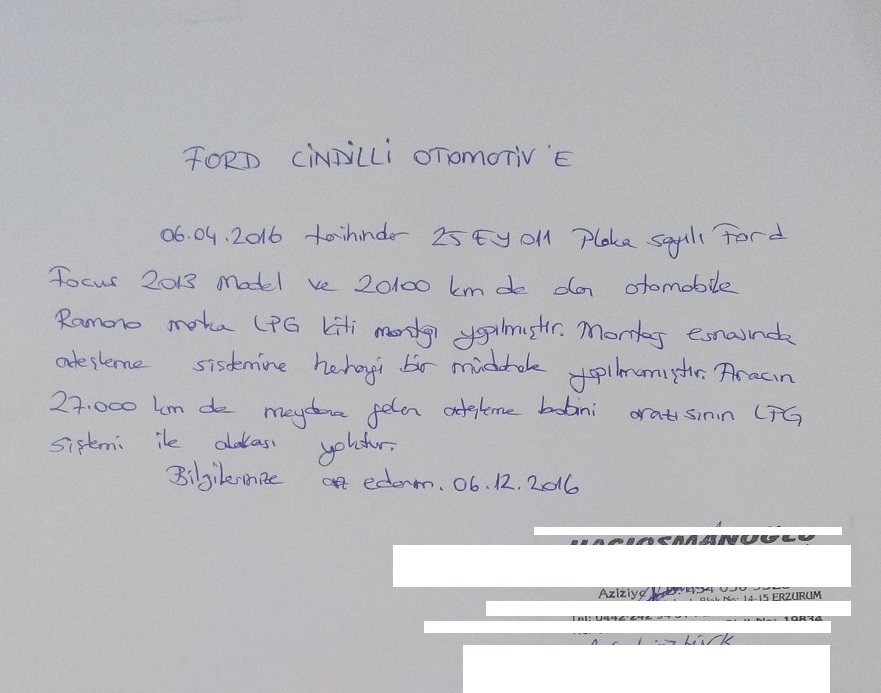 FORD CİNDİLLİ OTOMOTİV'E
06.04.2016 tarihinde 25 EY 011 Plaka sayılı Ford
Focus 2013 Model ve 20100 km de olan otomobile
Romano marka LPG kiti montajı yapılmıştır. Montaj esnasında
ateşleme sistemine herhangi bir müdahale yapılmamıştır. Aracın
27.000 km de meydana gelen ateşleme bobini arızasının LPG
sistemi ile alakası yoktur.
Bilgilerinize arz ederim. 06.12.2016
HACIOSMANOĞLU
Aziziye
No: 14-15 ERZURUM